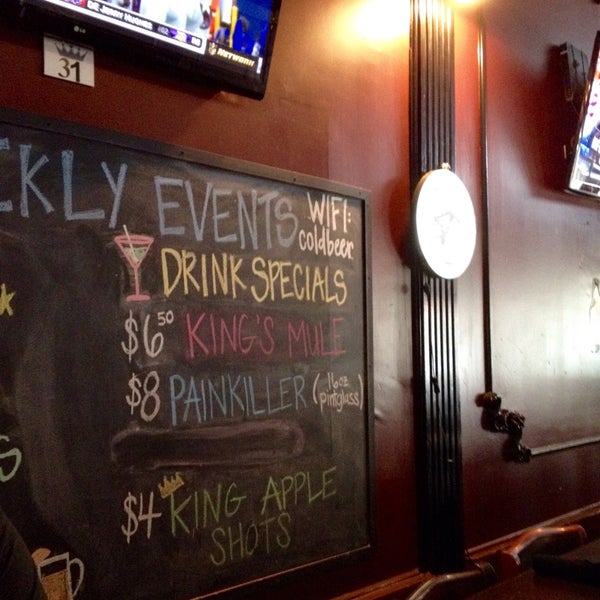 NETWORK
31
EKLY EVENTS
WIFI:
coldbeer
DRINK SPECIALS
$6.50 KING'S MULE
$8 PAINKILLER (16oz pintglass)
$4 KING APPLE
SHOTS